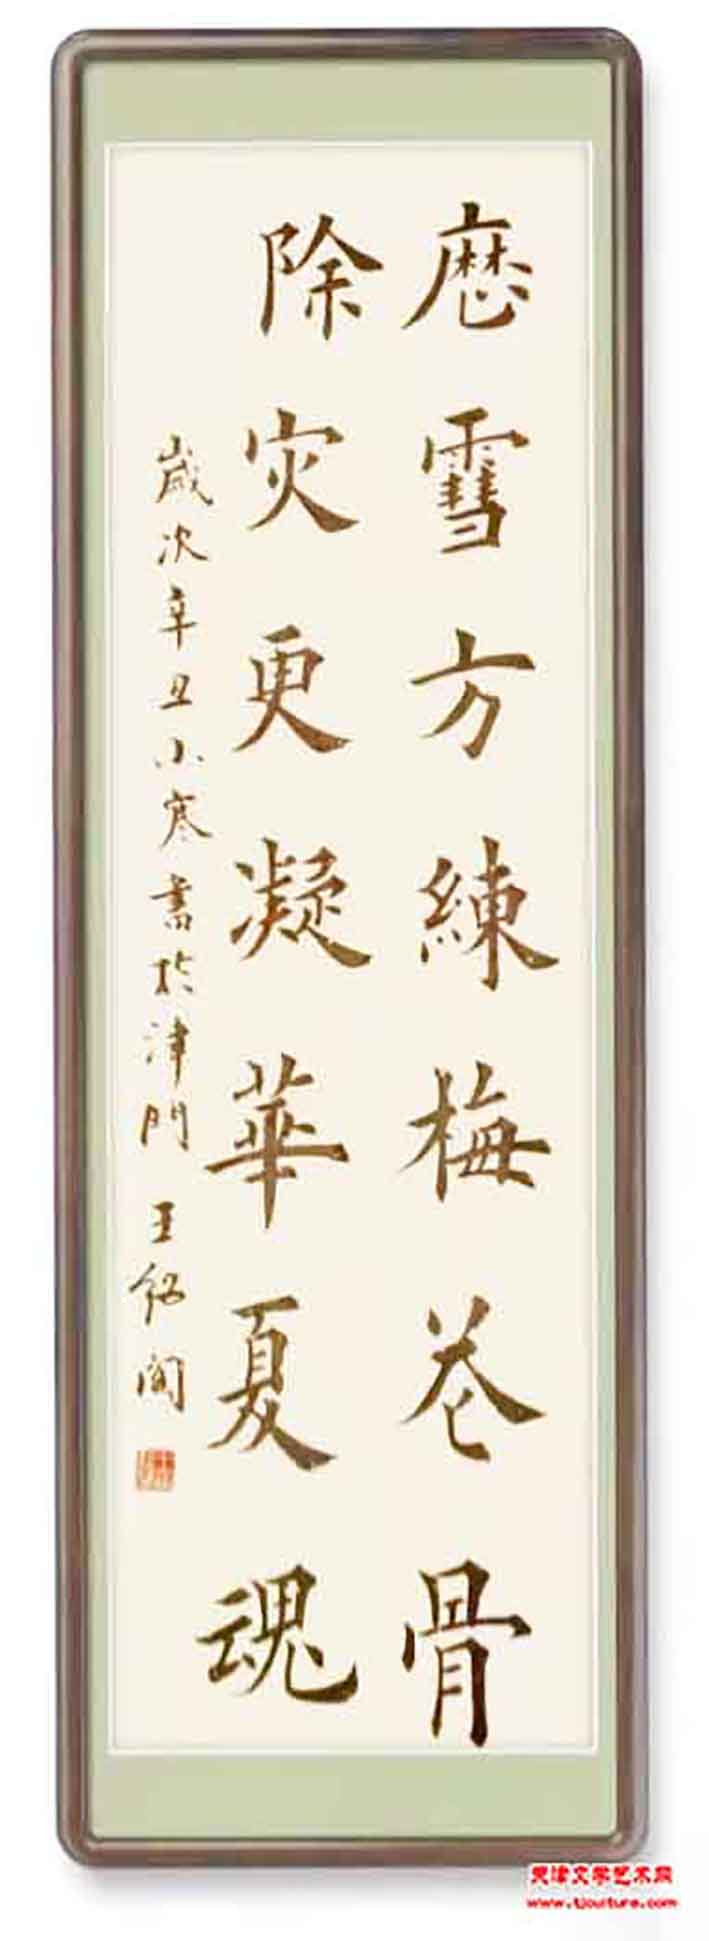 歴雪方練梅花骨
除灾更凝華夏魂
歲次辛丑小寒書於津門 王紹閣
天津文学艺术网
www.tjculture.com